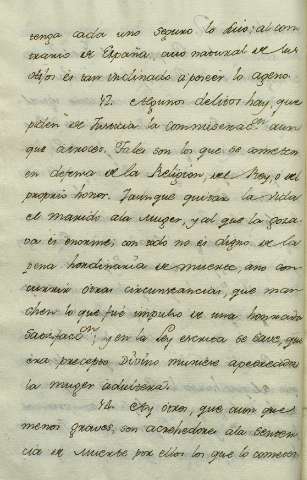 tenga cada uno seguro lo suio; al con
trario de España, cuio natural de los
es tan inclinado a poseer lo ageno.
72. Algunos delitos hay, que
piden de Justicia la commiserac.on aun
que atroces. Tales son los que se cometen
en defensa de la Religion, del Rey, o del
proprio honor. Y aunque quitar la vida
el marido a la muger, y al que la goza
va es enorme, con todo no es digno de la
pena hordinaria de muerte, a no con
currir otras circunstancias, que man
chen lo que fué impulso de una honrada
Satisfacc.on; y en la Ley escrita se save, que
era precepto Divino muriese apedreada
la muger adultera.
74. Ay otros, que aun que
menos graves, son acrehedores a la Senten
cia de muerte por ellos los que lo cometen